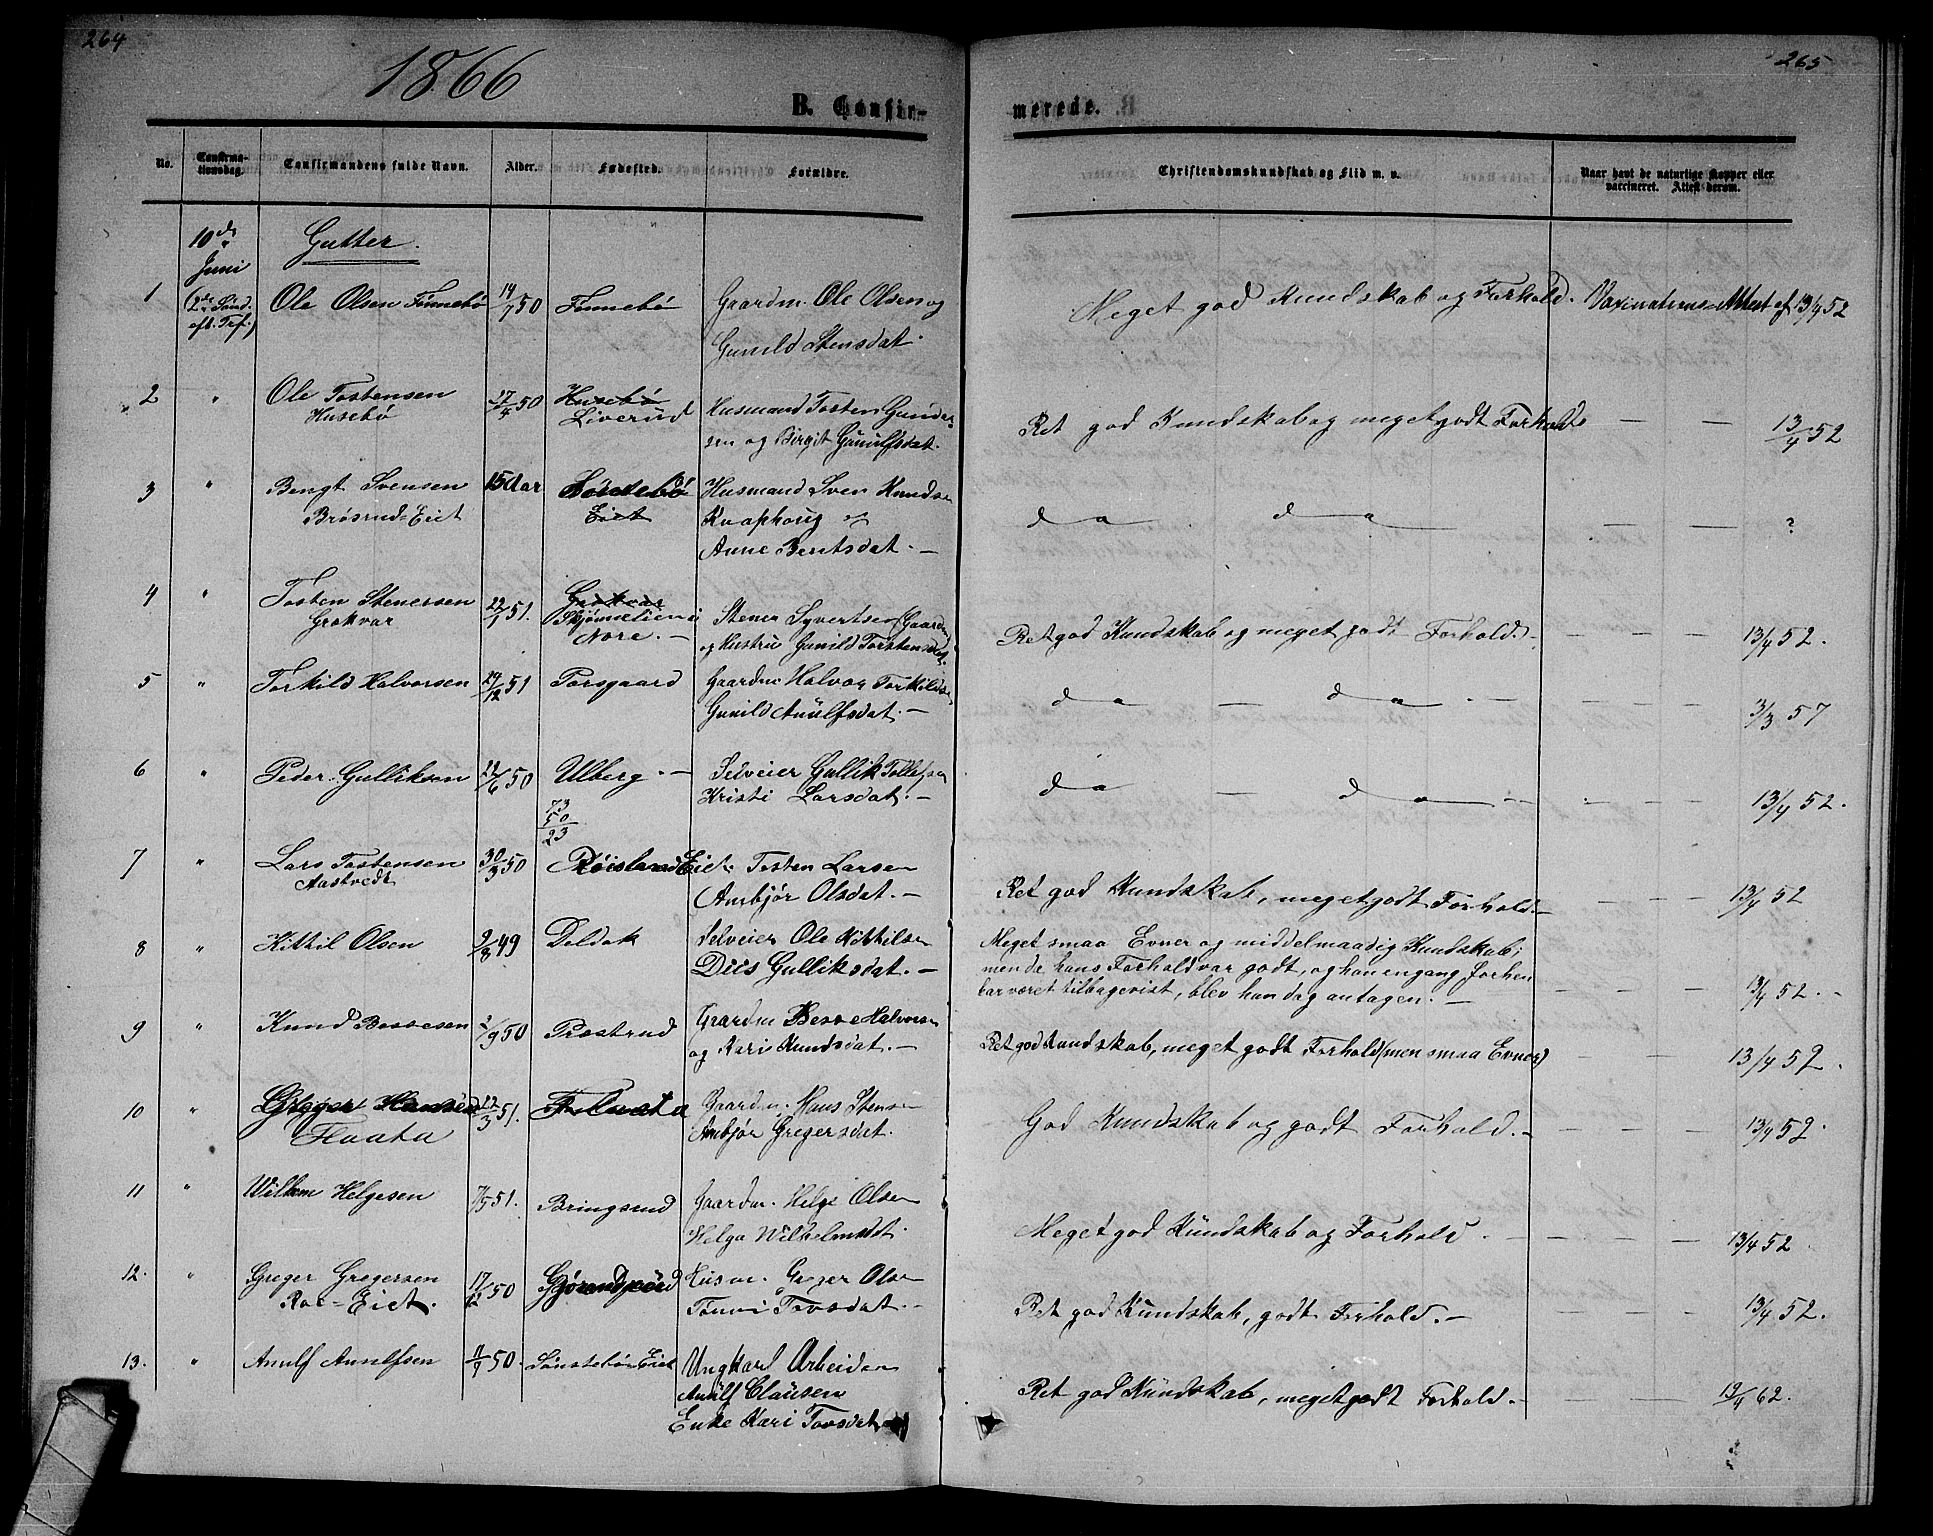 264
1866
B. Confir-
No.
Confirma-
tionsdag.
Confirmandens fulde Navn.
Alder.
Fødested.
Forældre.
10de
Juni
Gutter.
1 (2den Sönd. eft. Tref.) Ole Olsen Fönnebö 14/7 50 Fönnebö Gaardm. Ole Olsen og
Gunild Stensdat.
2 " Ole Tostensen 27/4 50 Husebö Husmand Tosten Gunder-
Husebö Liverud sen og Birgit Gunulfsdat.
3 " Bengt Svensen 15 Aar Sönstebö Husmand Sven Knudsen
Brösrud-Eiet Eiet Knaphoug og
Anne Bentsdat. —
4 " Tosten Stenersen 22/1 51. Grøkvar Stener Syvertsen (Gaardm)
Grøkvar Skjönnelien i Nore. — og Hustru Gunild Torstensdat.
5 " Torkild Halvorsen 29/12 51 Porsgaard Gaardm Halvor Torkilds.
Gunild Anulfsdat. —
6 " Peder Gulliksen 22/6 50 Ulberg. — Selveier Gullik Tollefsen
Kristi Larsdat. —
73
50
23
7 " Lars Tostensen 30/3 50 Röisland Eiet. Tosten Larsen
Aastvedt Ambjør Olsdat. —
8 " Kittil Olsen 9/8 49 Doldok Selveier Ole Kittilsen
Diis Gulliksdat. —
9 " Knud Bessesen 2/9 50 Prestrud Gaardm Besse Halvorsen
og Kari Knudsdat. —
10 " Greger Hansen 12/3 51. Flaata Gaardm. Hans Stensen
Flaata Ambjör Gregersdat.
11 " Willem Helgesen 7/5 51. Bringsrud Gaardm. Helge Olsen
Helga Wilhelmsdt.
12. " Greger Gregersen 17/12 50 Husm. Greger Olsen
Roe-Eiet. Tönni Tovsdat. —
13. " Anulf Anulfsen 11/9 50. Sönstebö Eiet Ungkarl Arbeider
Anulf Clausen
Enke Kari Tovsdat
265
merede.
Christendomskundskab og Flid m. v.
Naar havt de naturlige Kopper eller
vaccineret. Attest derom.
Meget god Kundskab og Forhold. Vaxinations-Attest af 13/4 52
Ret god Kundskab og meget godt Forhold — — 13/4 52
da da — — — ?
Ret god Kundskab og meget godt Forhold. — — — — 13/4 52.
da — da — — — — 3/3 57
da — da — — — — 13/4 52.
Ret god Kundskab, meget godt Forhold. — — — — 13/4 52
Meget smaa Evner og middelmaadig Kundskab;
men da hans Forhold var godt, og han engang forhen
har været tilbagevist, blev han dog antagen. — — — — 13/4 52. -
Ret god Kundskab, meget godt Forhold (men smaa Evner) — — 13/4 52.
God Kundskab og godt Forhold. — — — — 13/4 52.
Meget god Kundskab og Forhold. — — — — 13/4 52
Ret god Kundskab, godt Forhold. — 13/4 52.
Ret god Kundskab, meget godt Forhold. — — — 13/4 62.